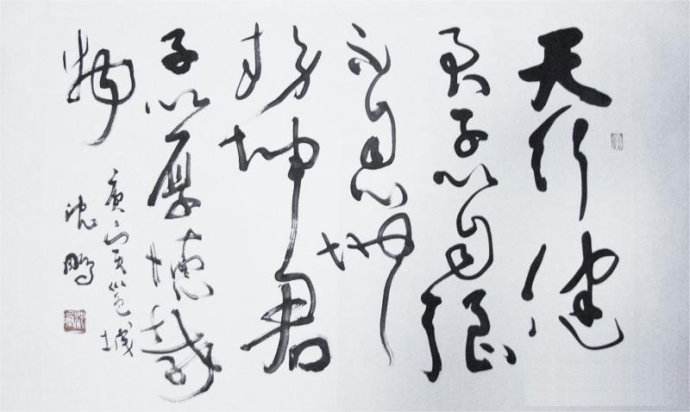 天行健
君子以自强
不息地
势坤君
子以厚德载
物
沈鹏